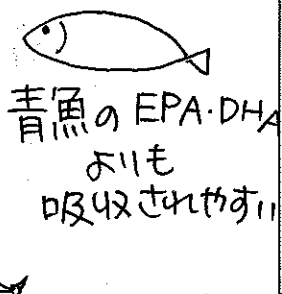 青魚のEPA・DHA
よりも
吸収されやすい